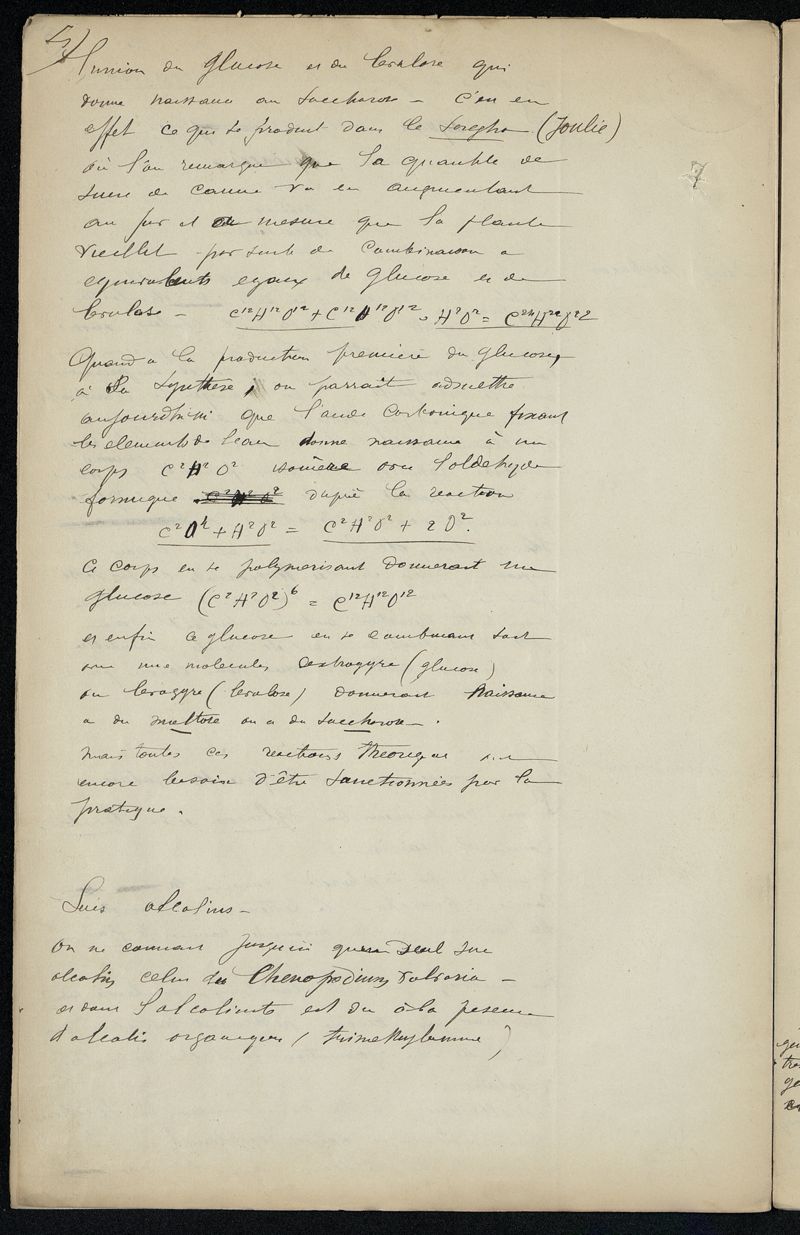 5)
l'union du glucose et du levulose qui
donne naissance au saccharose – c'est en
effet ce qui se produit dans le Sorgho (Joulie)
où l'on remarque que la quantité de
sucre de canne va en augmentant
au fur et à mesure que la plante
vieillit par suite de combinaison a
equivalents egaux de glucose et de
levulose – C¹²H¹²O¹² + C¹²H¹²O¹² - H²O² = C²⁴H²²O²²
7
Quand a la production première du glucose,
à sa synthese, on parrait admettre
aujourd'hui que l'acide carbonique fixant
les elements de l'eau donne naissance à un
corps C²H²O² isomère avec l'aldehyde
formique C²H²O² d'après la reaction
C²O⁴ + H²O² = C²H²O² + 2O².
Ce corps en se polymerisant donnerait un
glucose (C²H²O²)⁶ = C¹²H¹²O¹²
et enfin ce glucose en se combinant soit
avec une molecules dextrogyre (glucose)
ou levogyre (levulose) donnerait naissance
a du maltose ou a du saccharose.
mais toutes ces reactions theoriques ont
encore besoin d'être sanctionnées par la
pratique.
Sucs alcalins –
On ne connait jusqu'ici qu'un seul suc
alcalin celui du Chenopodium vulvaria –
et dont l'alcalinité est du à la presence
d'alcalis organiques (trimethylamine)